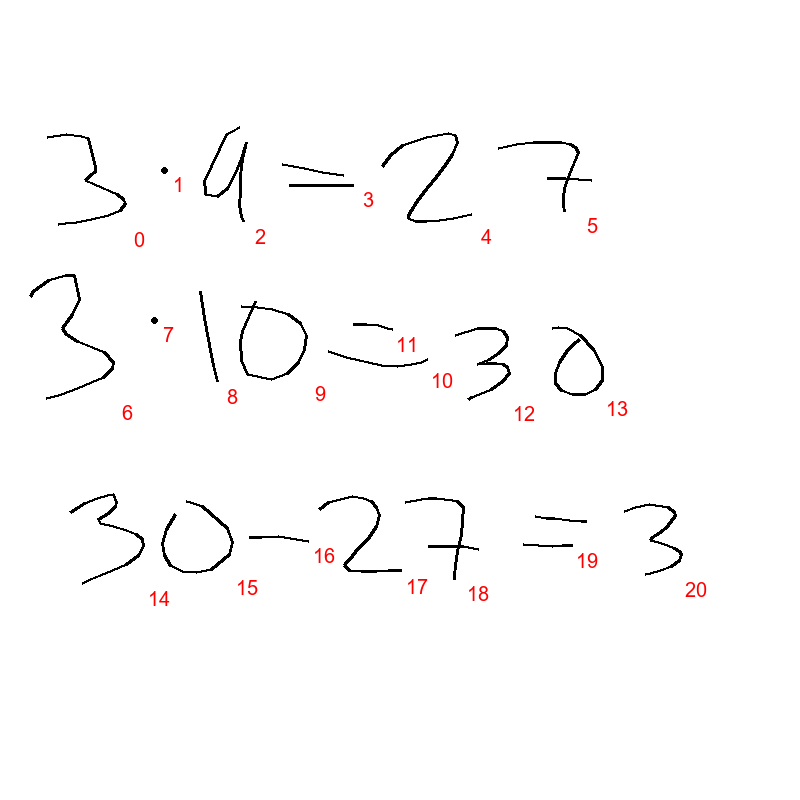 3 · 9 = 27
0 1 2 3 4 5
3 · 10 = 30
6 7 8 9 11 10 12 13
30 - 27 = 3
14 15 16 17 18 19 20